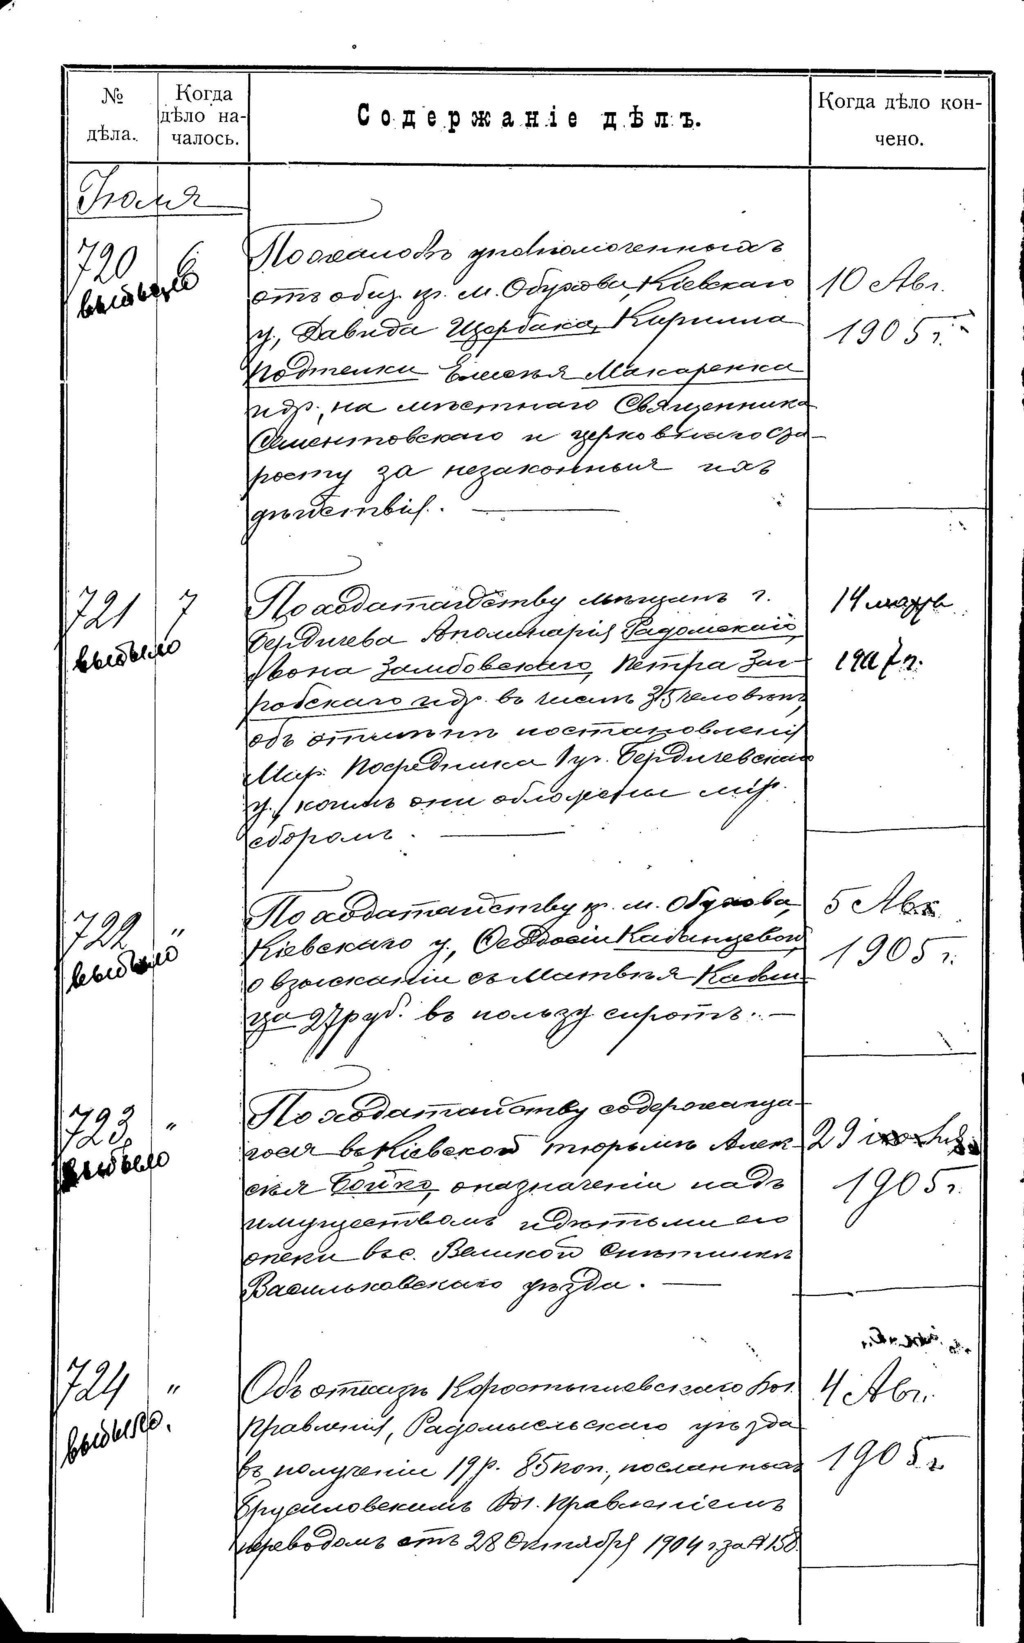 №
дѣла.
Когда
дѣло на-
чалось.
Содержаніе дѣлъ.
Когда дѣло кон-
чено.
Іюля
720 6
выбыло
По жалобѣ уполномоченныхъ
отъ общ. кр. м. Обухова, Кіевскаго
у., Давида Щербака, Кирилла
Подтелки Елисея Макаренка
и др., на мѣстнаго Священника
Сементовскаго и церковнаго ста-
росту за незаконныя ихъ
дѣйствія. —
10 Авг.
1905 г.
721 7
выбыло
По ходатайству мѣщанъ г.
Бердичева Аполинарія Радомскаго,
Ивона Замбовскаго, Петра Заг-
робскаго и др. въ числѣ 35 человѣкъ,
объ отмѣнѣ постановленія
Мир. Посредника 1 уч. Бердичевскаго
у., коимъ они обложены мір.
сборомъ. —
14 марта
1907 г.
722 "
выбыло
По ходатайству кр. м. Обухова,
Кіевскаго у., Ѳеодосіи Кабанцевой,
о взысканіи съ Матвѣя Кабан-
ца 27 руб. въ пользу сиротъ. —
5 Авг.
1905 г.
723 "
выбыло
По ходатайству содержаща-
гося въ Кіевской тюрьмѣ Алек-
сѣя Бойко, о назначеніи надъ
имуществомъ и дѣтьми его
опеки въ с. Великой Снѣтинкѣ
Васильковскаго уѣзда. —
29
1905 г.
724 "
выбыло.
Объ отказѣ Коростышевскаго Вол.
Правленія, Радомысльскаго уѣзда
въ полученіи 19 р. 85 коп., посланныхъ
Брусиловскимъ Вол. Правленіемъ
переводомъ отъ 28 Октября 1904 г. за № 158.
4 Авг.
1905 г.